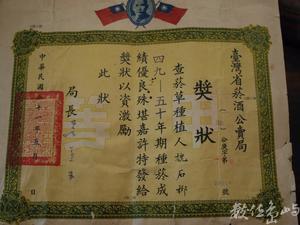 臺灣省菸酒公賣局
獎狀
查菸草種植人
四九/五十年期種菸成
績優良殊堪嘉許特發給
獎狀以資激勵
此狀
局長
中華民國 十一年 月 日